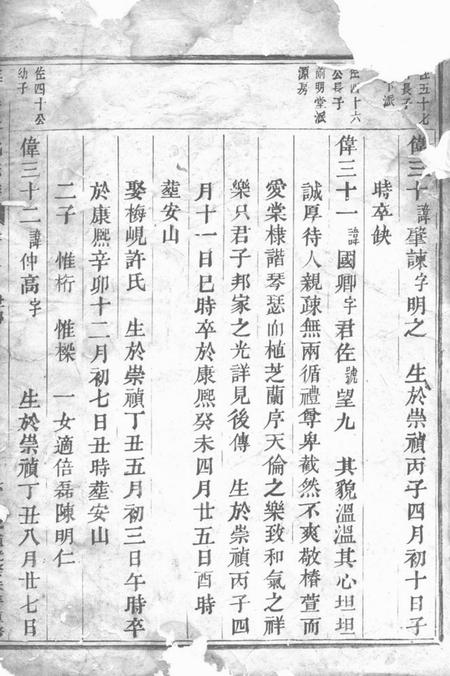 五十七
長子
下派
偉三十諱肇諫字明之　生於崇禎丙子四月初十日子
時卒缺
佐四十六
公長子
前明堂派
源房
偉三十一諱國卿字君佐號望九　其貌溫溫其心坦坦
誠厚待人親疎無兩循禮尊卑截然不爽敬椿萱而
愛棠棣諧琴瑟而植芝蘭序天倫之樂致和氣之祥
樂只君子邦家之光詳見後傳　生於崇禎丙子四
月十一日巳時卒於康熙癸未四月廿五日酉時
塟安山
娶梅峴許氏　生於崇禎丁丑五月初三日午時卒
於康熙辛卯十二月初七日丑時塟安山
二子　惟桁　惟櫟　一女適倍磊陳明仁
佐四十公
幼子
偉三十二諱仲高字　生於崇禎丁丑八月廿七日